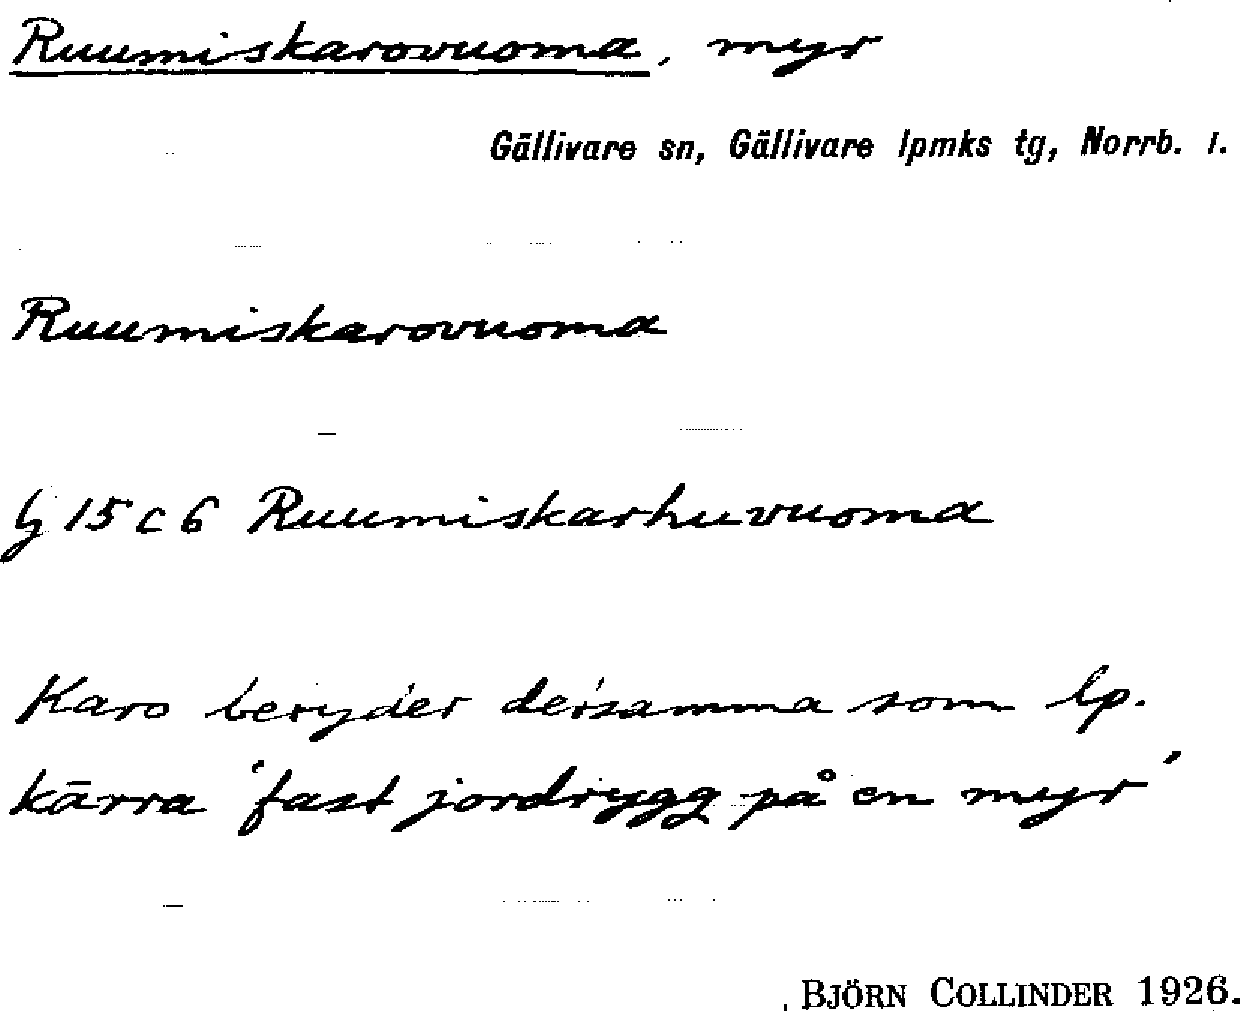 Ruumiskarovuoma, myr
Gällivare sn, Gällivare lpmks tg, Norrb. l.
Ruumiskarovuoma
lj 15 c 6 Ruumiskarhuvuoma
Karo betyder detsamma som lp.
kārra 'fast jordrygg på en myr'
BJÖRN COLLINDER 1926.